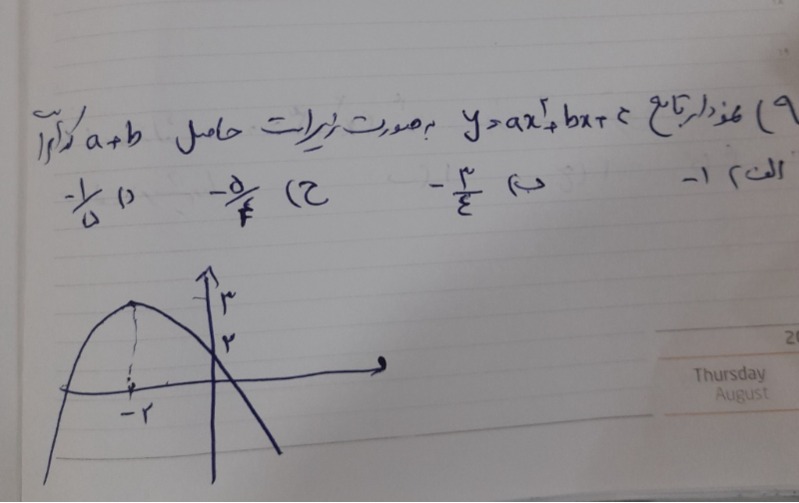 ۹) نمودار تابع y=ax²+bx+c به صورت زیر است حاصل a+b کدام است
الف) -۱ ب) -۳/۴ ج) -۵/۴ د) -۱/۵
۳
۲
-۲
Thursday
August